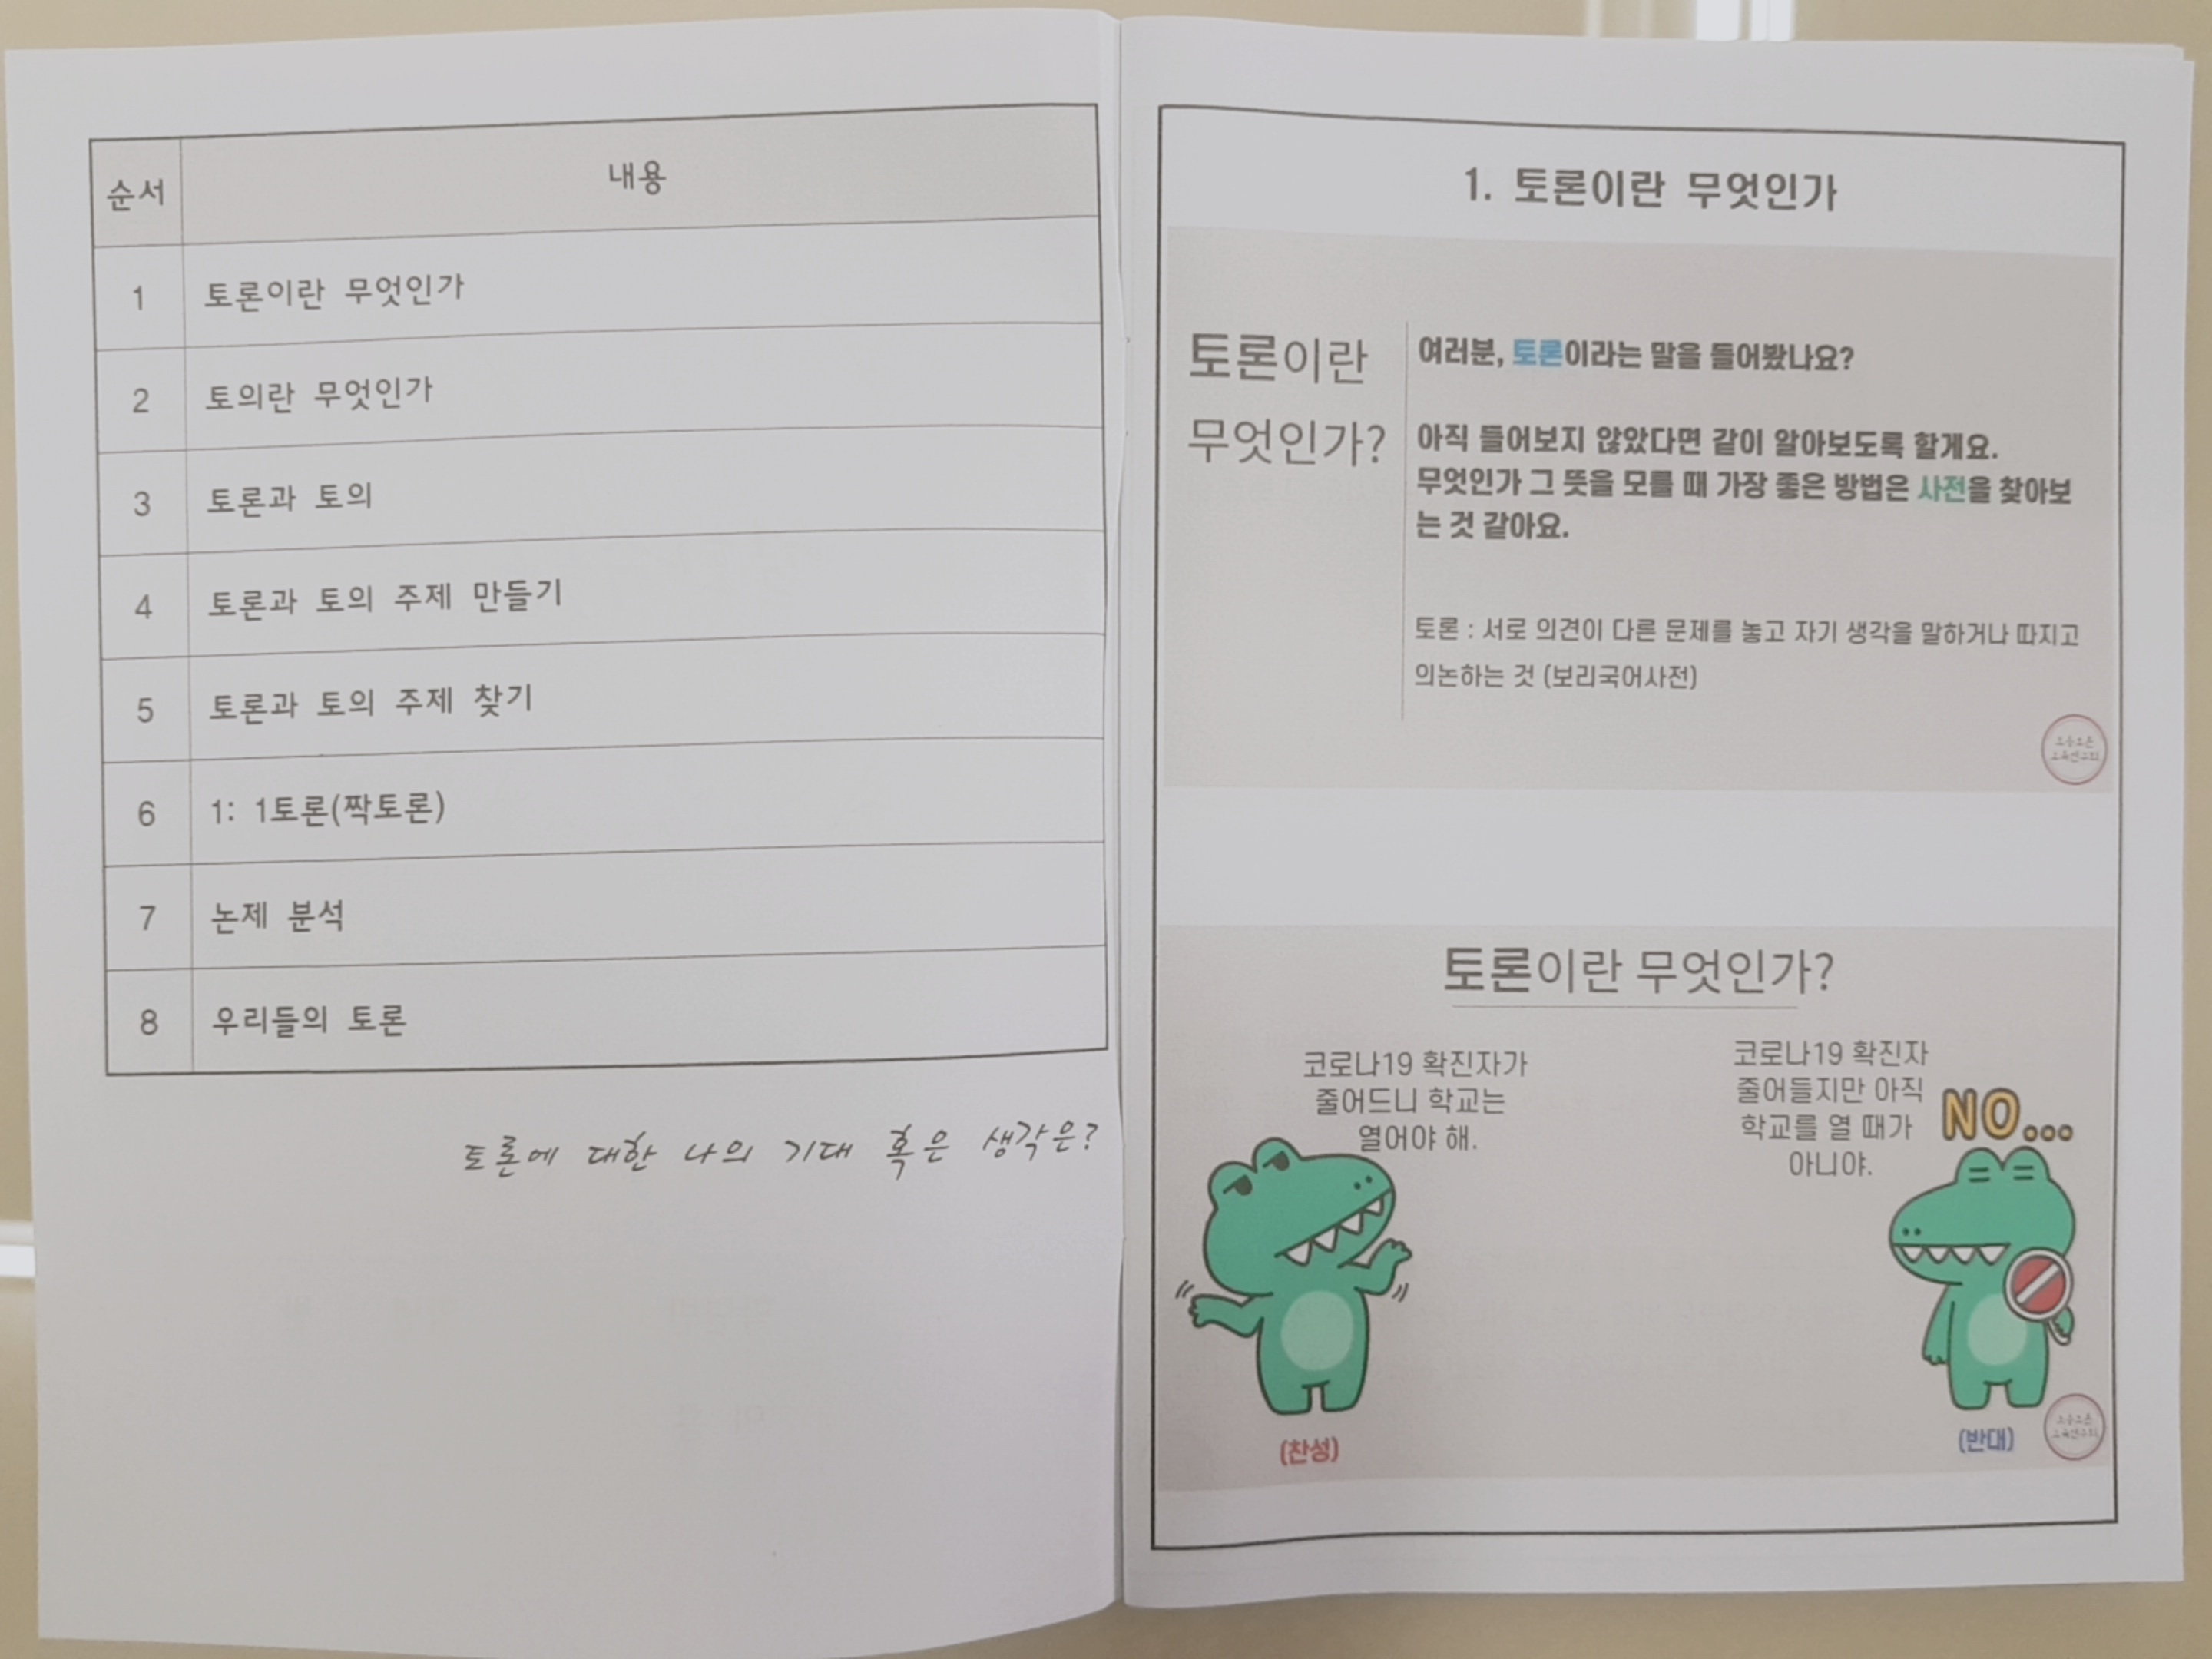 순서 내용
1 토론이란 무엇인가
2 토의란 무엇인가
3 토론과 토의
4 토론과 토의 주제 만들기
5 토론과 토의 주제 찾기
6 1: 1토론(짝토론)
7 논제 분석
8 우리들의 토론
토론에 대한 나의 기대 혹은 생각은?
1. 토론이란 무엇인가
토론이란
무엇인가?
여러분, 토론이라는 말을 들어봤나요?
아직 들어보지 않았다면 같이 알아보도록 할게요.
무엇인가 그 뜻을 모를 때 가장 좋은 방법은 사전을 찾아보
는 것 같아요.
토론 : 서로 의견이 다른 문제를 놓고 자기 생각을 말하거나 따지고
의논하는 것 (보리국어사전)
토론이란 무엇인가?
코로나19 확진자가
줄어드니 학교는
열어야 해.
(찬성)
코로나19 확진자
줄어들지만 아직
학교를 열 때가
아니야.
NO...
(반대)